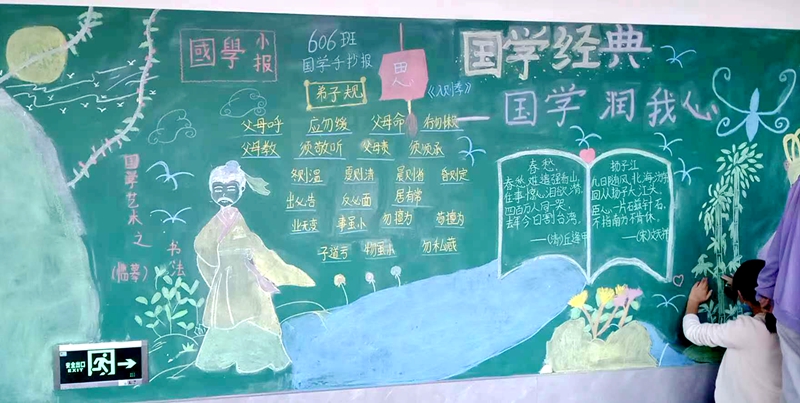 國學
小报
606班
国学手抄报
思
弟子规
《入则孝》
国学经典
— 国学润我心
父母呼 应勿缓 父母命 行勿懒
父母教 须敬听 父母责 须顺承
冬则温 夏则清 晨则省 昏则定
出必告 反必面 居有常
业无变 事虽小 勿擅为 苟擅为
子道亏 物虽小 勿私藏
国学艺术之
书法
春愁
春愁难遣强看山,
往事惊心泪欲潸。
四百万人同一哭,
去年今日割台湾。
——(清)丘逢甲
扬子江
几日随风北海游
回从扬子大江头。
臣心一片磁针石,
不指南方不肯休。
——(宋)文天祥
安全出口
EXIT